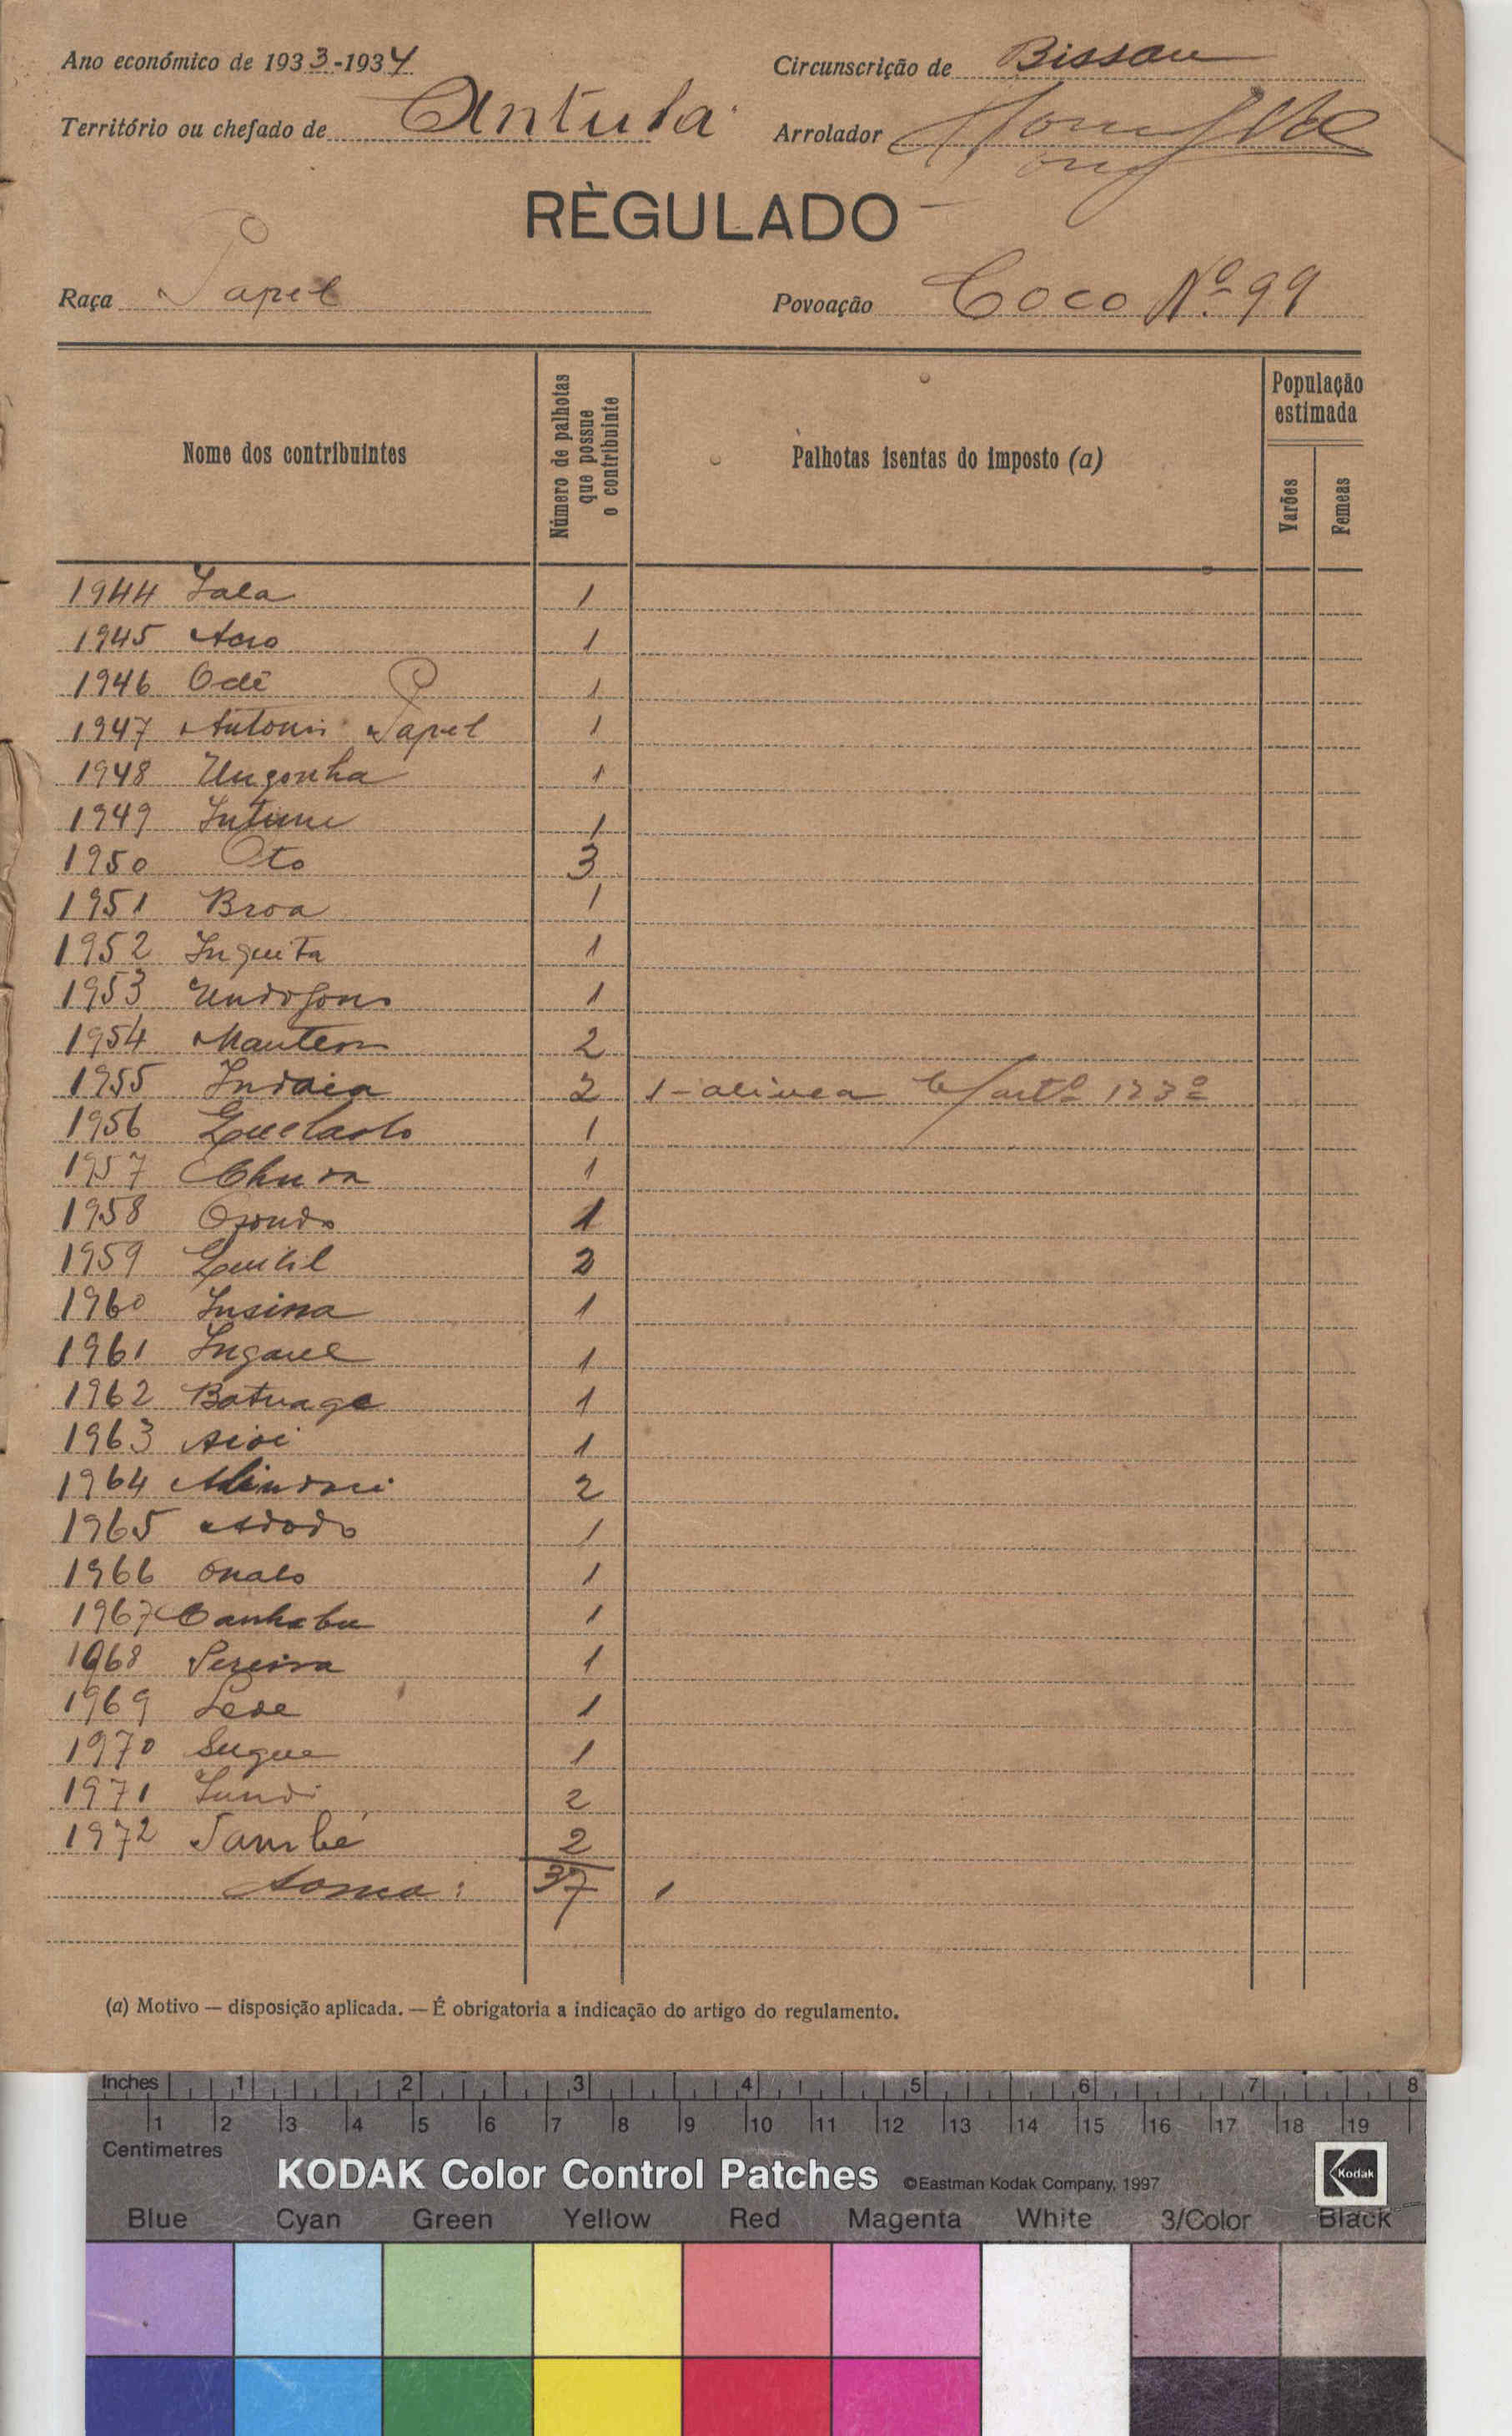 Ano económico de 1933-1934
Circunscrição de Bissau
Território ou chefado de Antula
Arrolador
RÈGULADO
Raça Papel
Povoação Coco Nº 99
Nome dos contribuintes
Número de palhotas que possue o contribuinte
Palhotas isentas do imposto (a)
População estimada
Varões
Femeas
1944 Lala 1
1945 1
1946 Odé 1
1947 Antonio Papel 1
1948 Ungonha 1
1949 1
1950 Oto 3
1951 Broa 1
1952 Inquita 1
1953 1
1954 2
1955 Indaia 2 1-alinea artº 123º
1956 1
1957 1
1958 1
1959 2
1960 Insina 1
1961 1
1962 Batuage 1
1963 1
1964 2
1965 1
1966 1
1967 1
1968 Pereira 1
1969 1
1970 Sugue 1
1971 2
1972 També 2
Soma: 37 1
(a) Motivo — disposição aplicada. — É obrigatoria a indicação do artigo do regulamento.
Inches 1 2 3 4 5 6 7 8
1 2 3 4 5 6 7 8 9 10 11 12 13 14 15 16 17 18 19
Centimetres
KODAK Color Control Patches ©Eastman Kodak Company, 1997 Kodak
Blue Cyan Green Yellow Red Magenta White 3/Color Black